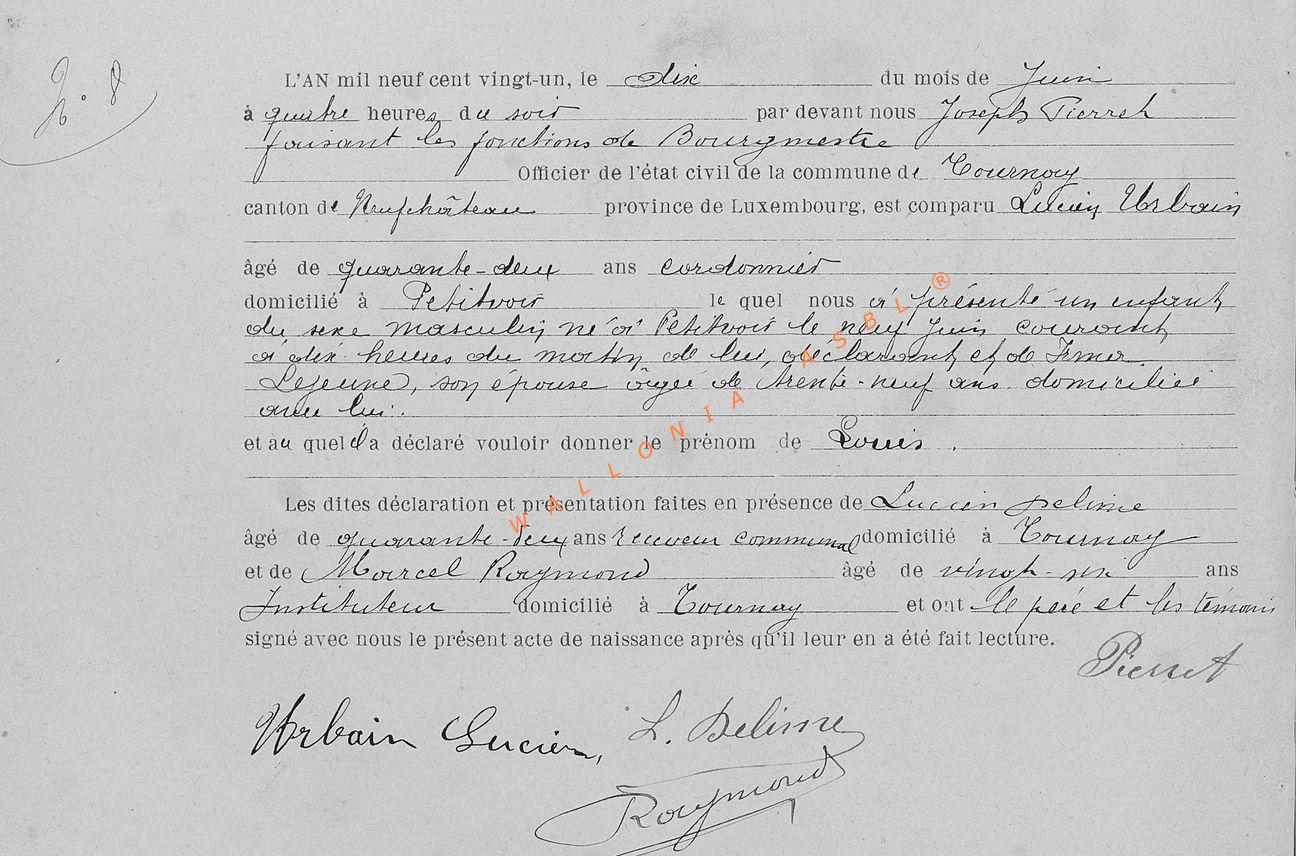 N° 8
L'AN mil neuf cent vingt-un, le dix du mois de Juin
à quatre heures du soir par devant nous Joseph Pierret
faisant les fonctions de Bourgmestre
Officier de l'état civil de la commune de Tournay
canton de Neufchâteau province de Luxembourg, est comparu Lucien Urbain
âgé de quarante-deux ans cordonnier
domicilié à Petitvoir le quel nous a présenté un enfant
du sexe masculin né à Petitvoir le neuf Juin courant
à dix heures du matin de lui, déclarant et de Irma
Lejeune, son épouse âgée de trente-neuf ans domiciliée
avec lui.
et au quel il a déclaré vouloir donner le prénom de Louis.
Les dites déclaration et présentation faites en présence de Lucien Delime
âgé de quarante-deux ans receveur communal domicilié à Tournay
et de Marcel Raymond âgé de vingt-six ans
Instituteur domicilié à Tournay et ont le père et les témoins
signé avec nous le présent acte de naissance après qu'il leur en a été fait lecture.
Pierret
Urbain Lucien, L. Delime
Raymond
WALLONIA ASBL ®